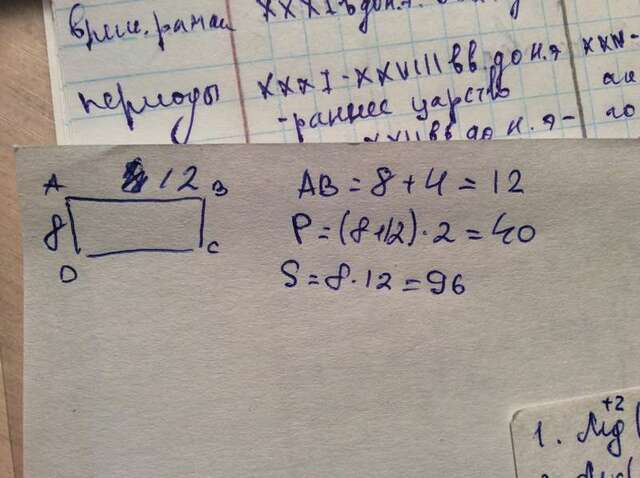 врем. рамки XXXI в до н.э.
периоды XXXI-XXVIII вв. до н.э XXIV-
-раннее царство
вв до н.э-
A 12 B
8
D C
AB = 8 + 4 = 12
P = (8+12) · 2 = 40
S = 8 · 12 = 96
+2
1. Mg(